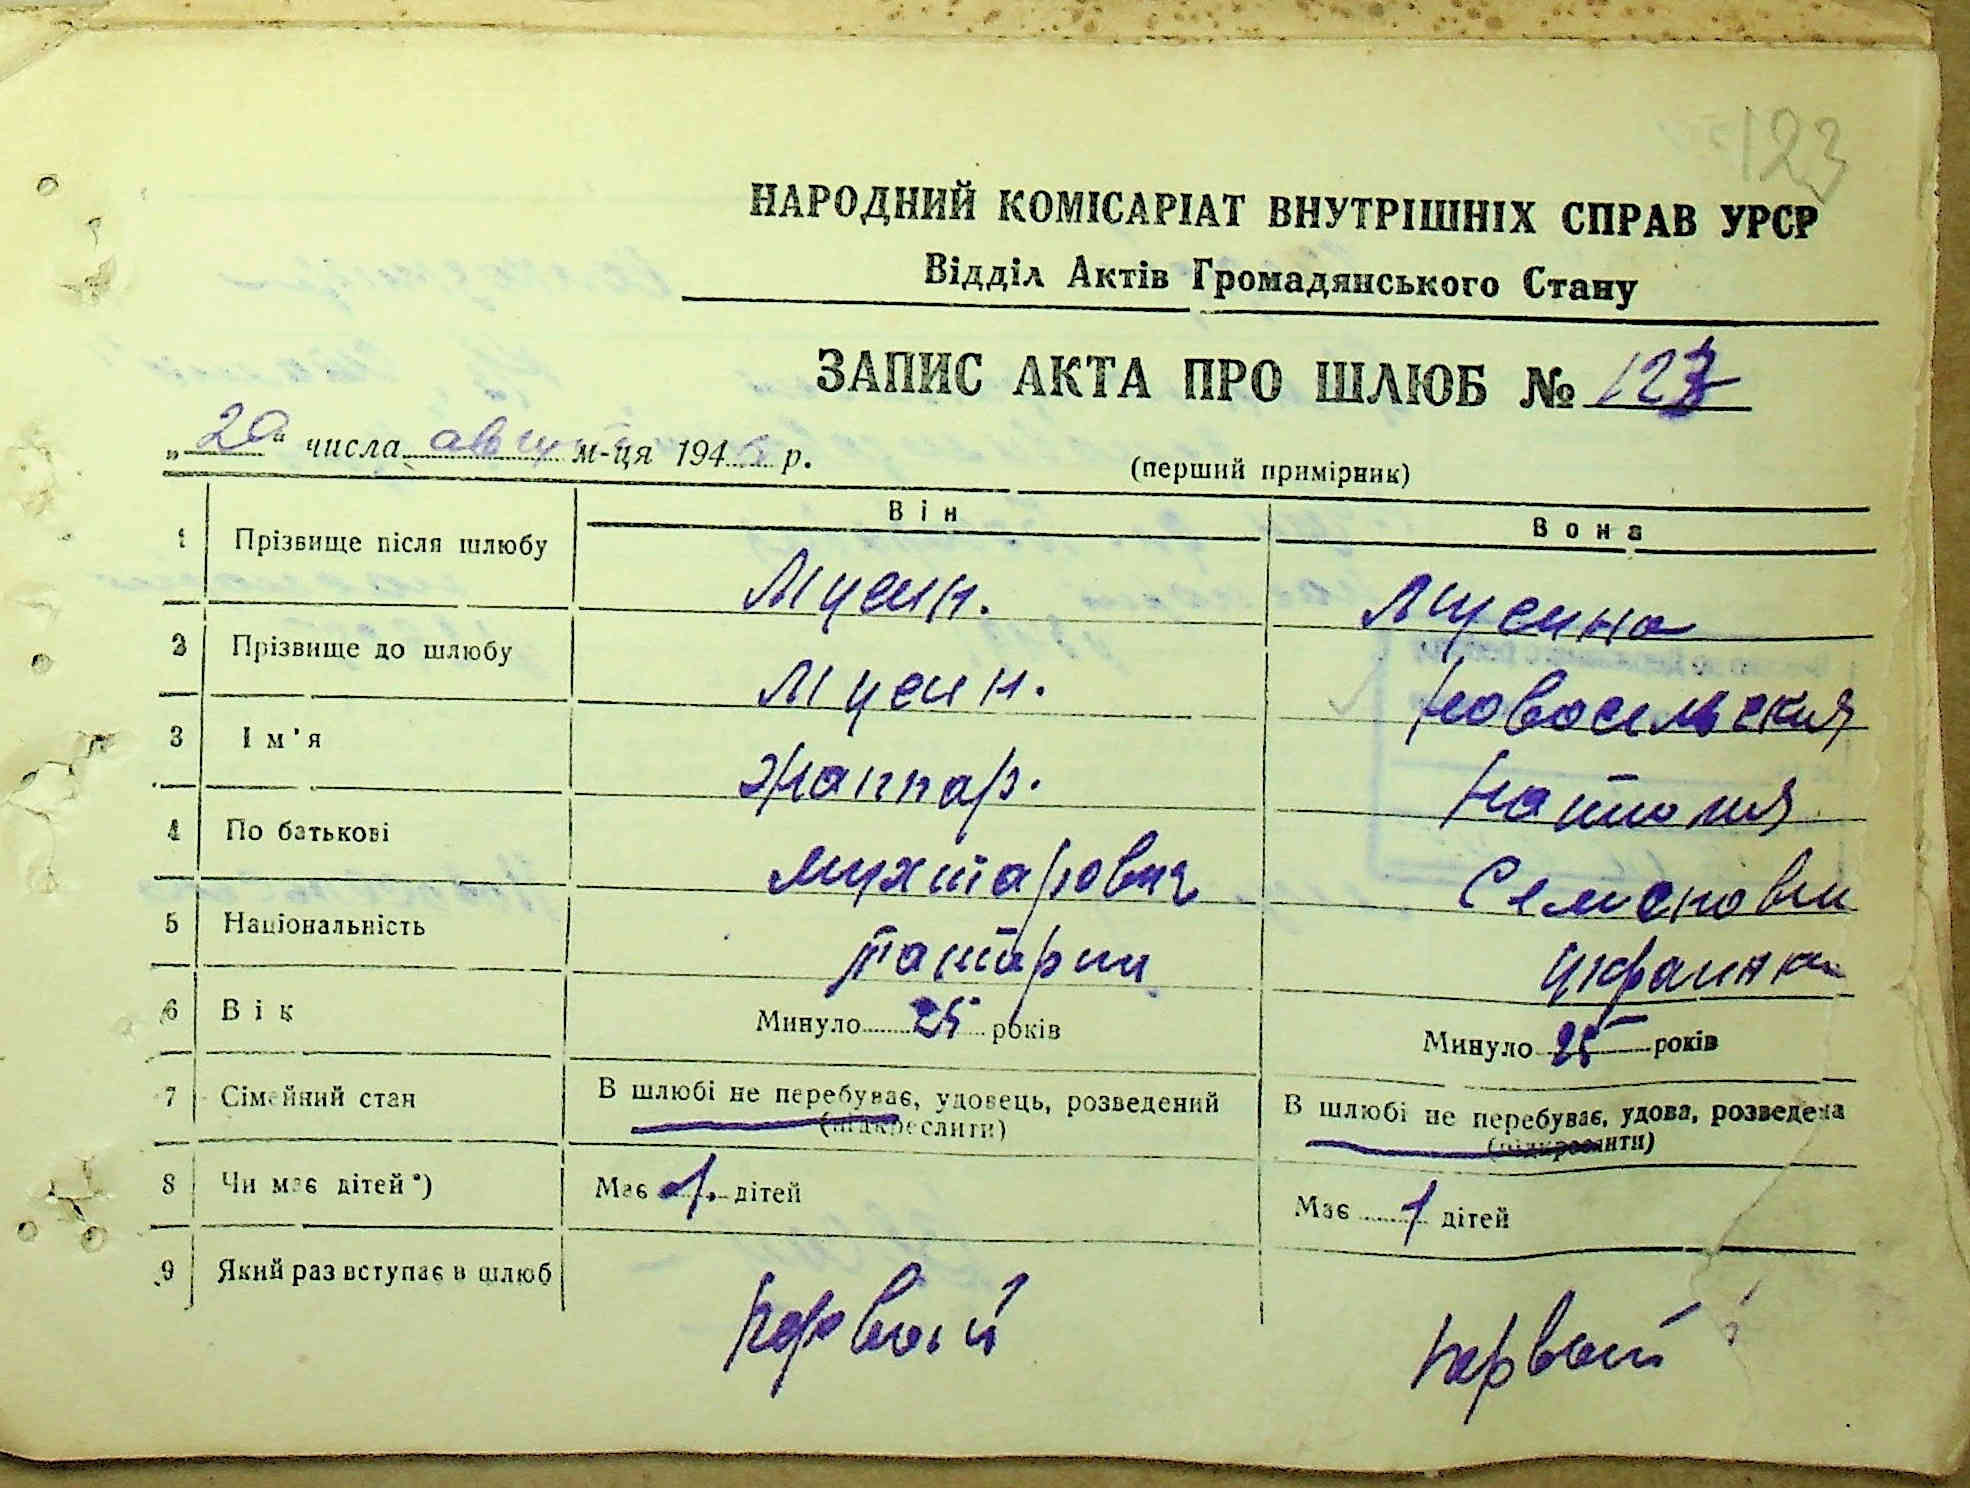 123
НАРОДНИЙ КОМІСАРІАТ ВНУТРІШНІХ СПРАВ УРСР
Відділ Актів Громадянського Стану
ЗАПИС АКТА ПРО ШЛЮБ № 123
„20“ числа август м-ця 1946 р.
(перший примірник)
Він Вона
1 Прізвище після шлюбу Мусин. Мусина
2 Прізвище до шлюбу Мусин. Новосельская
3 Ім'я Жаппар. Наталия
4 По батькові Мухтарович Семеновн
5 Національність татарин украинка
6 Вік Минуло 25 років Минуло 25 років
7 Сімейний стан В шлюбі не перебуває, удовець, розведений В шлюбі не перебуває, удова, розведена
(підкреслити) (підкреслити)
8 Чи має дітей*) Має 1. дітей Має 1 дітей
9 Який раз вступає в шлюб первый первый